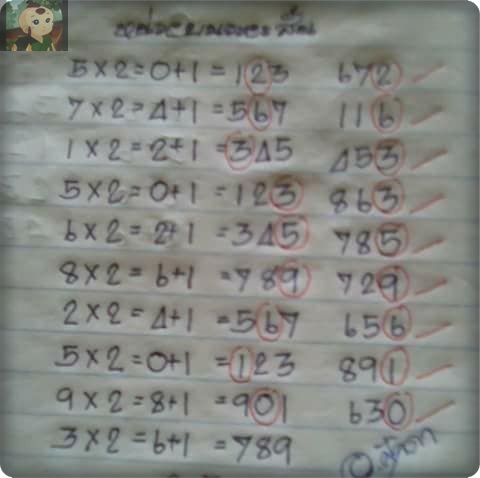 5×2=0+1=123 672
7×2=4+1=567 116
1×2=2+1=345 453
5×2=0+1=123 863
6×2=2+1=345 785
8×2=6+1=789 729
2×2=4+1=567 656
5×2=0+1=123 891
9×2=8+1=901 630
3×2=6+1=789